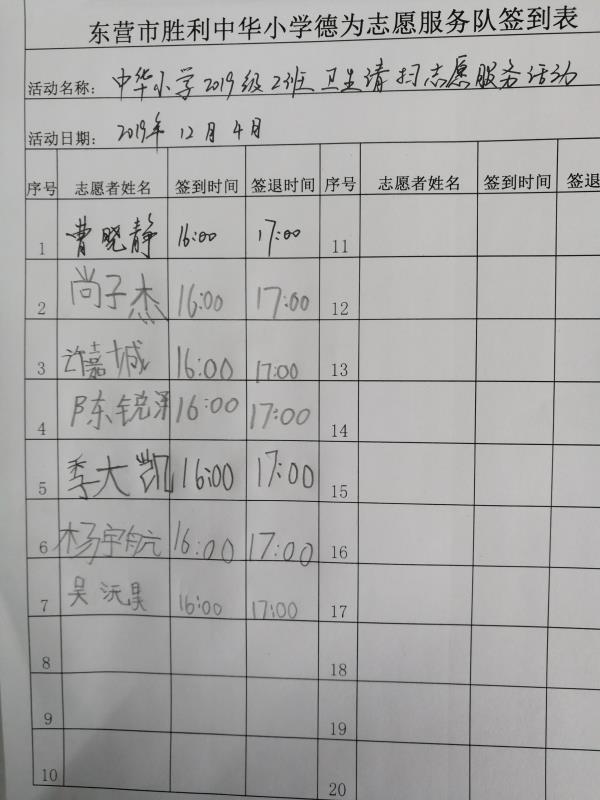 东营市胜利中华小学德为志愿服务队签到表
活动名称: 中华小学2019级2班卫生清扫志愿服务活动
活动日期: 2019年12月4日
序号 志愿者姓名 签到时间 签退时间 序号 志愿者姓名 签到时间 签退
1 曹晓静 16:00 17:00 11
2 尚子杰 16:00 17:00 12
3 许嘉城 16:00 17:00 13
4 陈锐泽 16:00 17:00 14
5 季大凯 16:00 17:00 15
6 杨宇航 16:00 17:00 16
7 吴沅昊 16:00 17:00 17
8 18
9 19
10 20